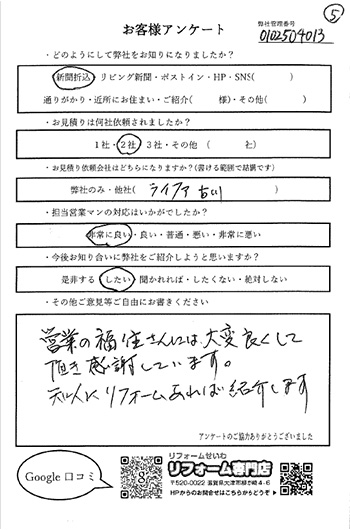 ⑤
お客様アンケート
弊社管理番号
0102504013
・どのようにして弊社をお知りになりましたか？
新聞折込・リビング新聞・ポストイン・HP・SNS( )
通りがかり・近所にお住まい・ご紹介( 様)・その他( )
・お見積りは何社依頼されましたか？
1社・2社・3社・その他 ( 社)
・お見積り依頼会社はどちらになりますか？(書ける範囲で結構です)
弊社のみ・他社( ライファ 古川 )
・担当営業マンの対応はいかがでしたか？
非常に良い・良い・普通・悪い・非常に悪い
・今後お知り合いに弊社をご紹介しようと思いますか？
是非する・したい・聞かれれば・したくない・絶対しない
・その他ご意見等ご自由にお書きください
営業の福住さんには大変良くして
頂き感謝しています。
知人にリフォームあれば紹介します
アンケートのご協力ありがとうございました
Google 口コミ
リフォームせいわ
リフォーム専門店
〒520-0022 滋賀県大津市柳が崎4-6
HPからのお問合せはこちらからどうぞ▶